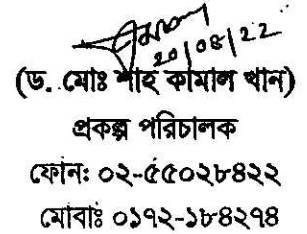 ২০/০৪/২২
(ড. মোঃ শাহ কামাল খান)
প্রকল্প পরিচালক
ফোন: ০২-৫৫০২৮৪২২
মোবাঃ ০১৭২-১৮৪২৭৪